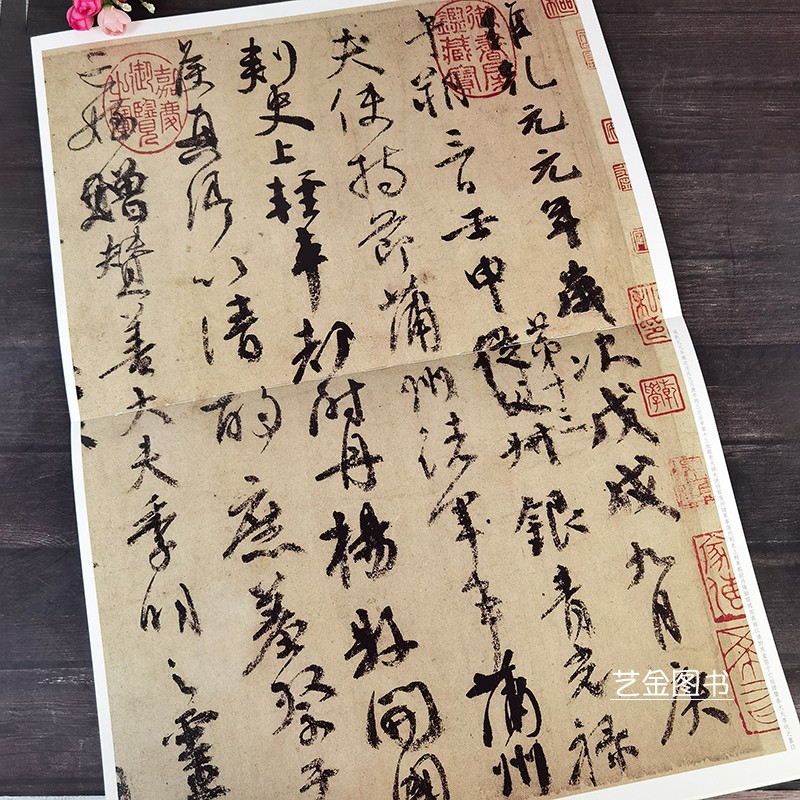 維乾元元年歲次戊戌九月庚
午朔三日壬申第十三從父叔銀青光祿
夫使持節蒲州諸軍事蒲州
刺史上輕車都尉丹楊縣開國
侯真卿以清酌庶羞祭于
亡姪贈贊善大夫季明之靈
御書房鑑藏寶
嘉慶御覽之寶
艺金图书